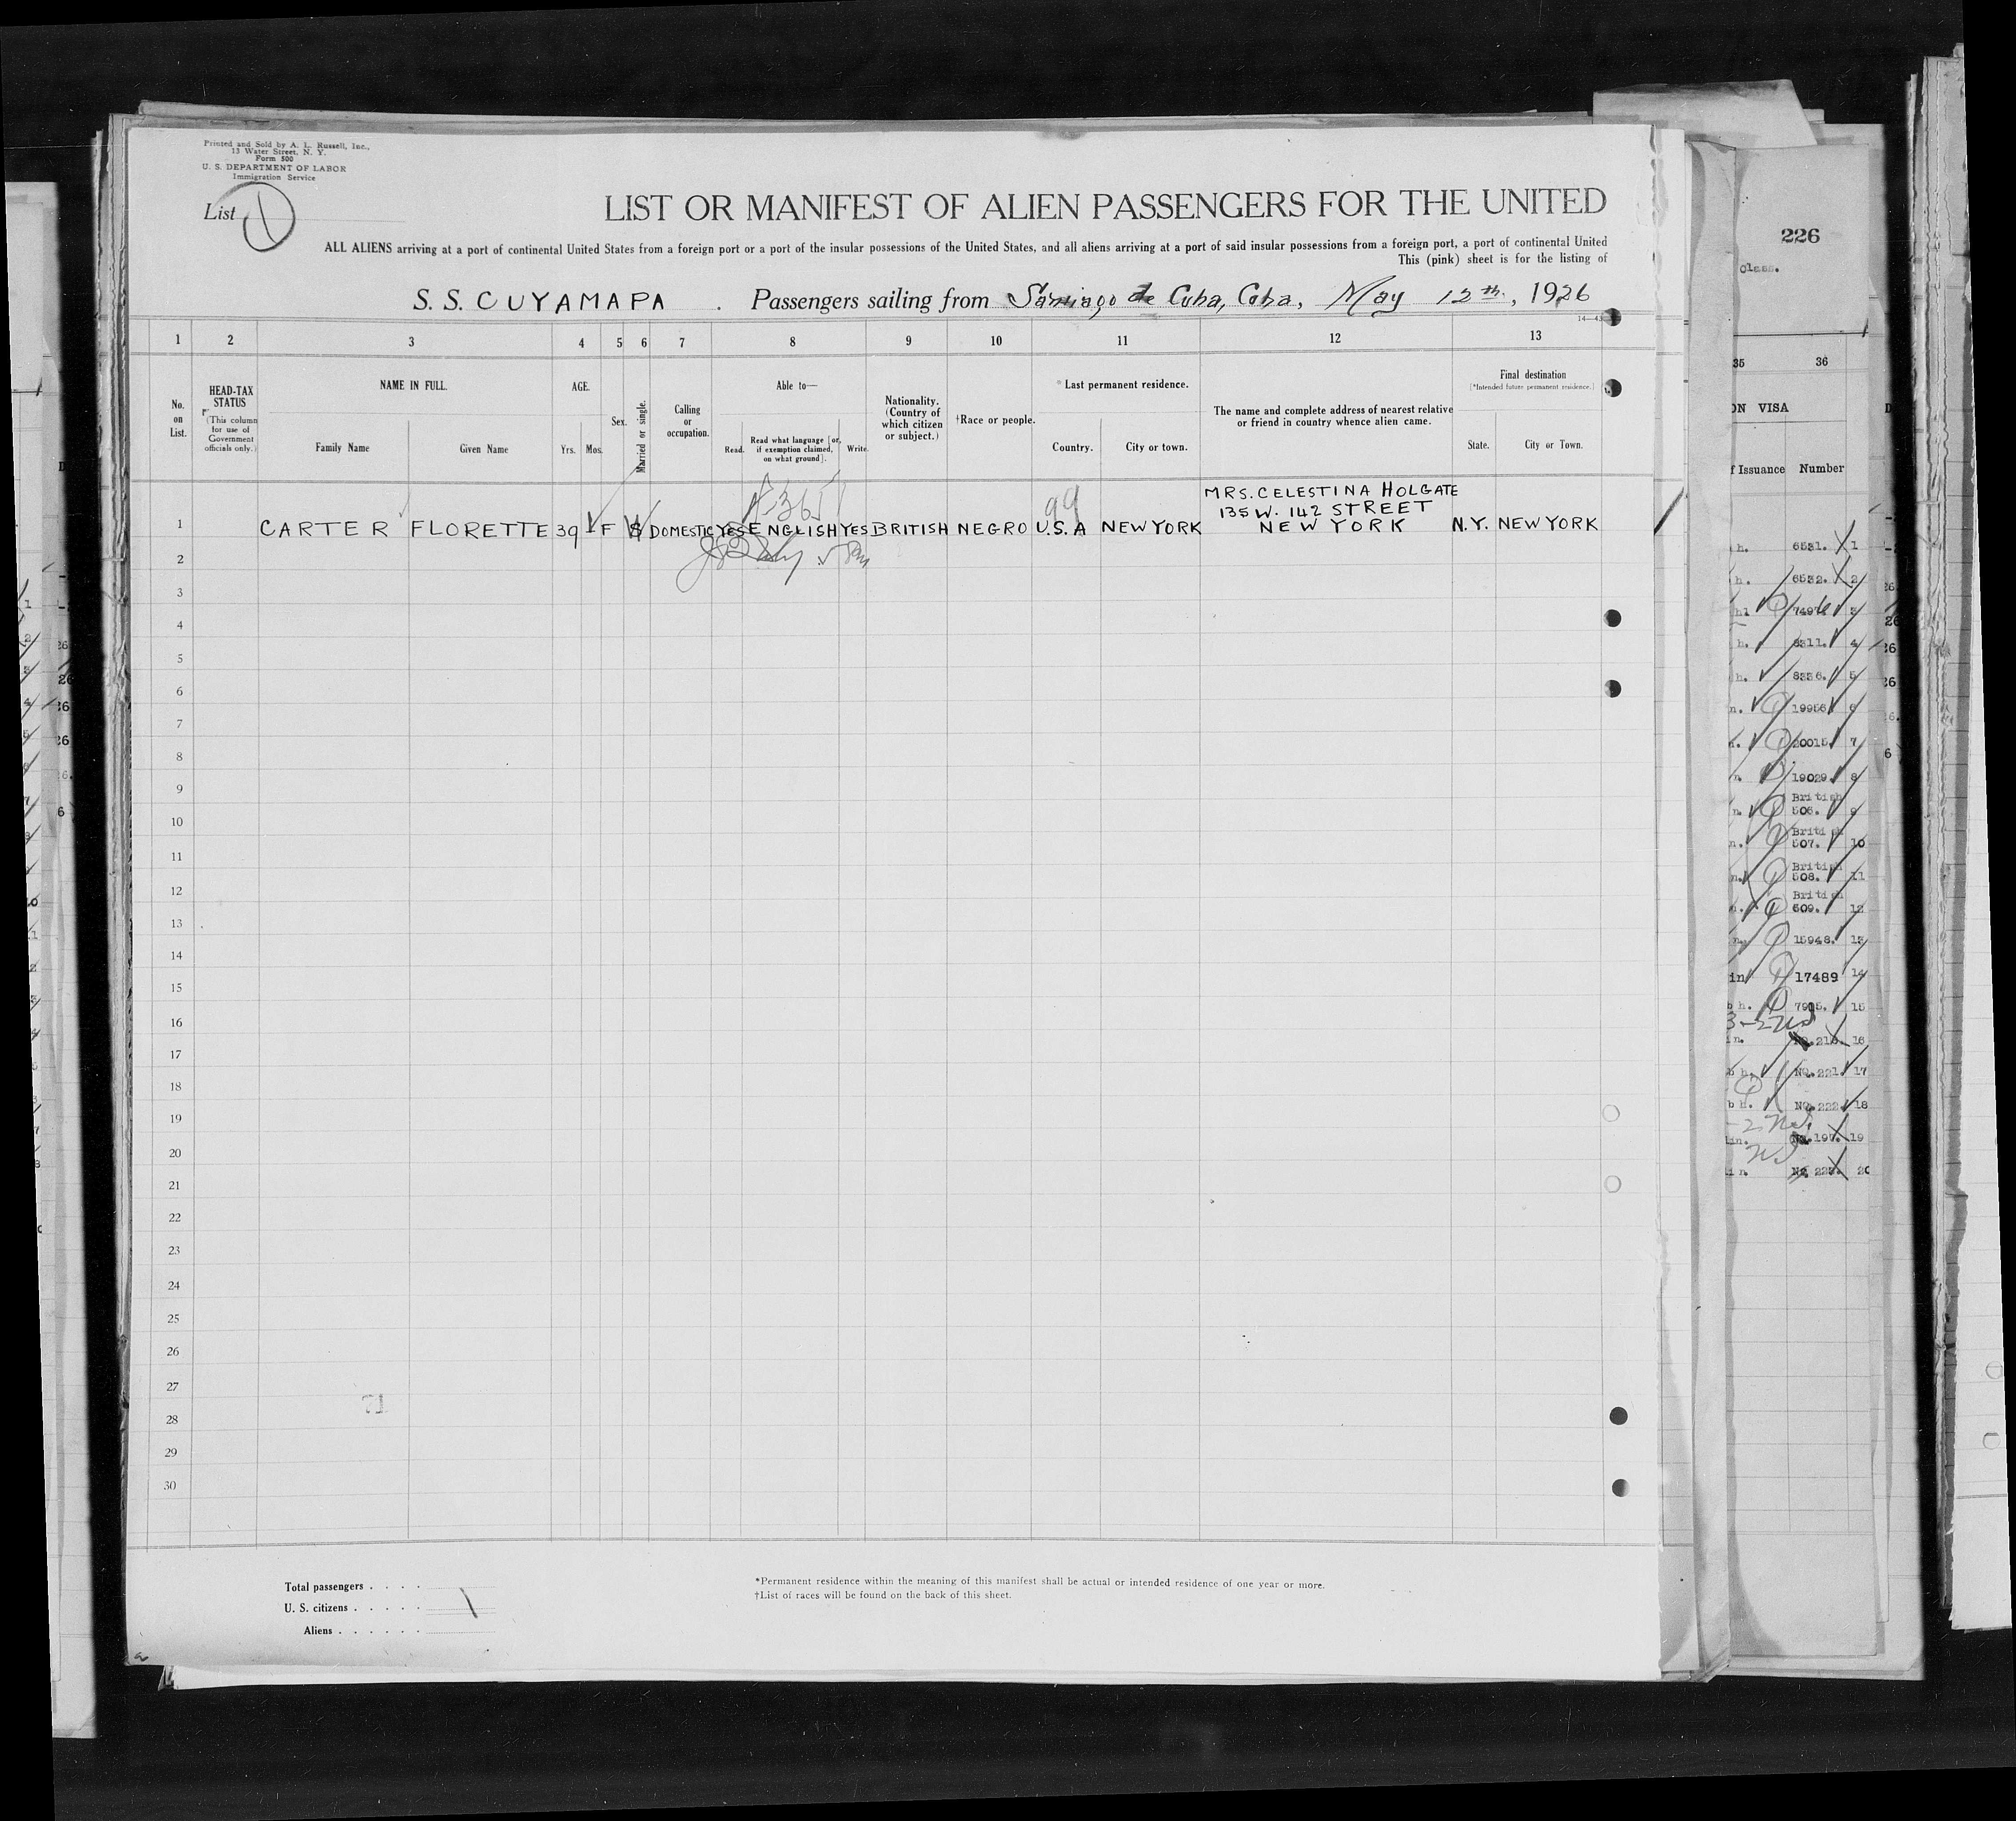 Printed and Sold by A. L. Russell, Inc.,
13 Water Street, N. Y.
Form 500
U. S. DEPARTMENT OF LABOR
Immigration Service
List 1
LIST OR MANIFEST OF ALIEN PASSENGERS FOR THE UNITED
ALL ALIENS arriving at a port of continental United States from a foreign port or a port of the insular possessions of the United States, and all aliens arriving at a port of said insular possessions from a foreign port, a port of continental United
This (pink) sheet is for the listing of
S. S. CUYAMAPA . Passengers sailing from Santiago de Cuba, Cuba, May 12th, 1926
1 2 3 4 5 6 7 8 9 10 11 12 13
No. on List.
HEAD-TAX STATUS
(This column for use of Government officials only.)
NAME IN FULL.
Family Name Given Name
AGE.
Yrs. Mos.
Sex.
Married or single.
Calling or occupation.
Able to—
Read. Read what language [or, if exemption claimed, on what ground]. Write.
Nationality. (Country of which citizen or subject.)
†Race or people.
*Last permanent residence.
Country. City or town.
The name and complete address of nearest relative or friend in country whence alien came.
Final destination
(*Intended future permanent residence.)
State. City or Town.
99
MRS. CELESTINA HOLGATE
135 W. 142 STREET
1 CARTER FLORETTE 39 F S DOMESTIC YES ENGLISH YES BRITISH NEGRO U.S.A NEW YORK NEW YORK N.Y. NEW YORK
2
3
4
5
6
7
8
9
10
11
12
13
14
15
16
17
18
19
20
21
22
23
24
25
26
27
28
29
30
Total passengers . . . .
U. S. citizens . . . . .
Aliens . . . . . .
*Permanent residence within the meaning of this manifest shall be actual or intended residence of one year or more.
†List of races will be found on the back of this sheet.
226
Class.
35 36
ON VISA
f Issuance Number
6531. 1
6532. 2
3
8311. 4
8336. 5
19956 6
20015 7
19029 8
British
506. 9
British
507. 10
British
508. 11
British
509. 12
15948. 13
17489 14
15
16
No. 221 17
No. 222 18
No. 197. 19